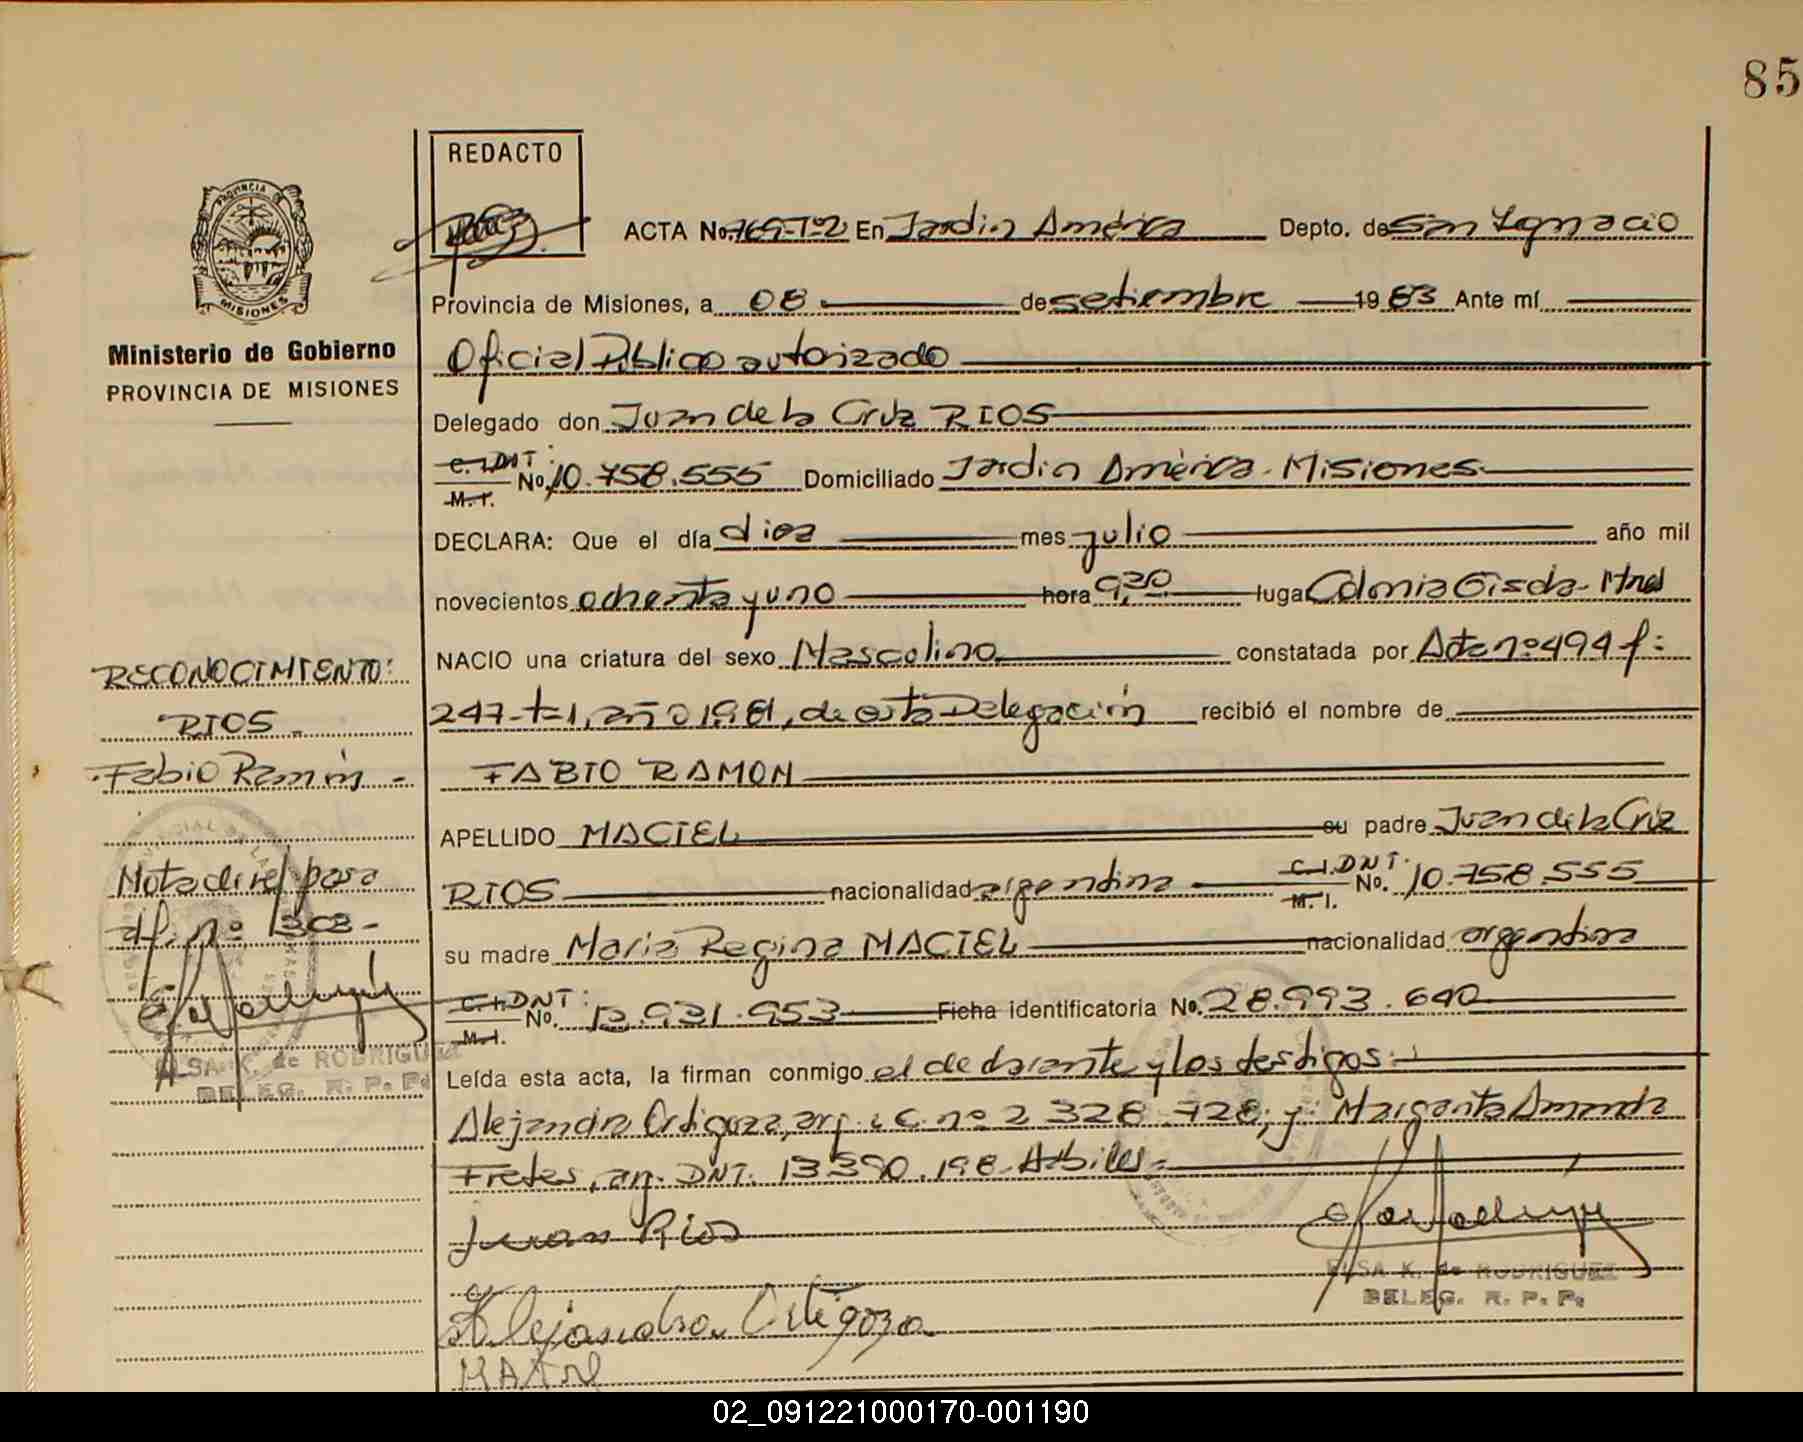 85
REDACTO
PROVINCIA DE
MISIONES
ACTA No. 769-Tº2 En Jardin América Depto. de San Ignacio
Provincia de Misiones, a 08 de setiembre 1983 Ante mí
Ministerio de Gobierno
PROVINCIA DE MISIONES
Oficial Público autorizado
Delegado don Juan de la Cruz RIOS
C.I. DNI: M.I. No. 10.758.555 Domiciliado Jardin América - Misiones
DECLARA: Que el día diez mes julio año mil
novecientos ochenta y uno hora 9,20 lugar Colonia Gisela - Mnes
NACIO una criatura del sexo Masculino constatada por Acta nº 494 f:
247-t=1, año 1981, de esta Delegación recibió el nombre de
FABIO RAMON
APELLIDO MACIEL su padre Juan de la Cruz
RIOS nacionalidad argentina C.I. DNI. M.I. No. 10.758.555
su madre Maria Regina MACIEL nacionalidad argentina
C.I. DNI: M.I. No. 12.921.953 Ficha identificatoria No. 28.993.640
Leída esta acta, la firman conmigo el declarante y los testigos:
Alejandra Ortigoza, arg. i.c. nº 2 328.728; y: Margarita Amanda
Fretes, arg. DNI. 13.390.198 - Hábiles
Juan Rios
Alejandra Ortigoza
ELSA K. de RODRIGUEZ
DELEG. R. P. P.
RECONOCIMIENTO:
RIOS -
Fabio Ramón -
Nota de ref. para
af. nº 1303 -
ELSA K. de RODRIGUEZ
DELEG. R. P. P.
02_091221000170-001190